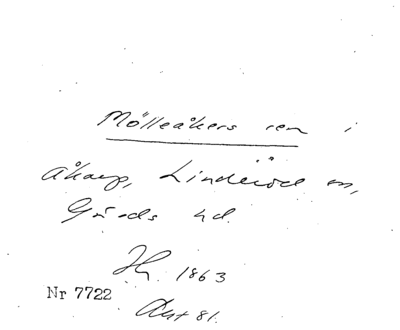 Mölleåkers ren i
Åkarp, Linderöd sn,
Gärds hd.
Hg. 1863
Nr 7722
Avst 81.